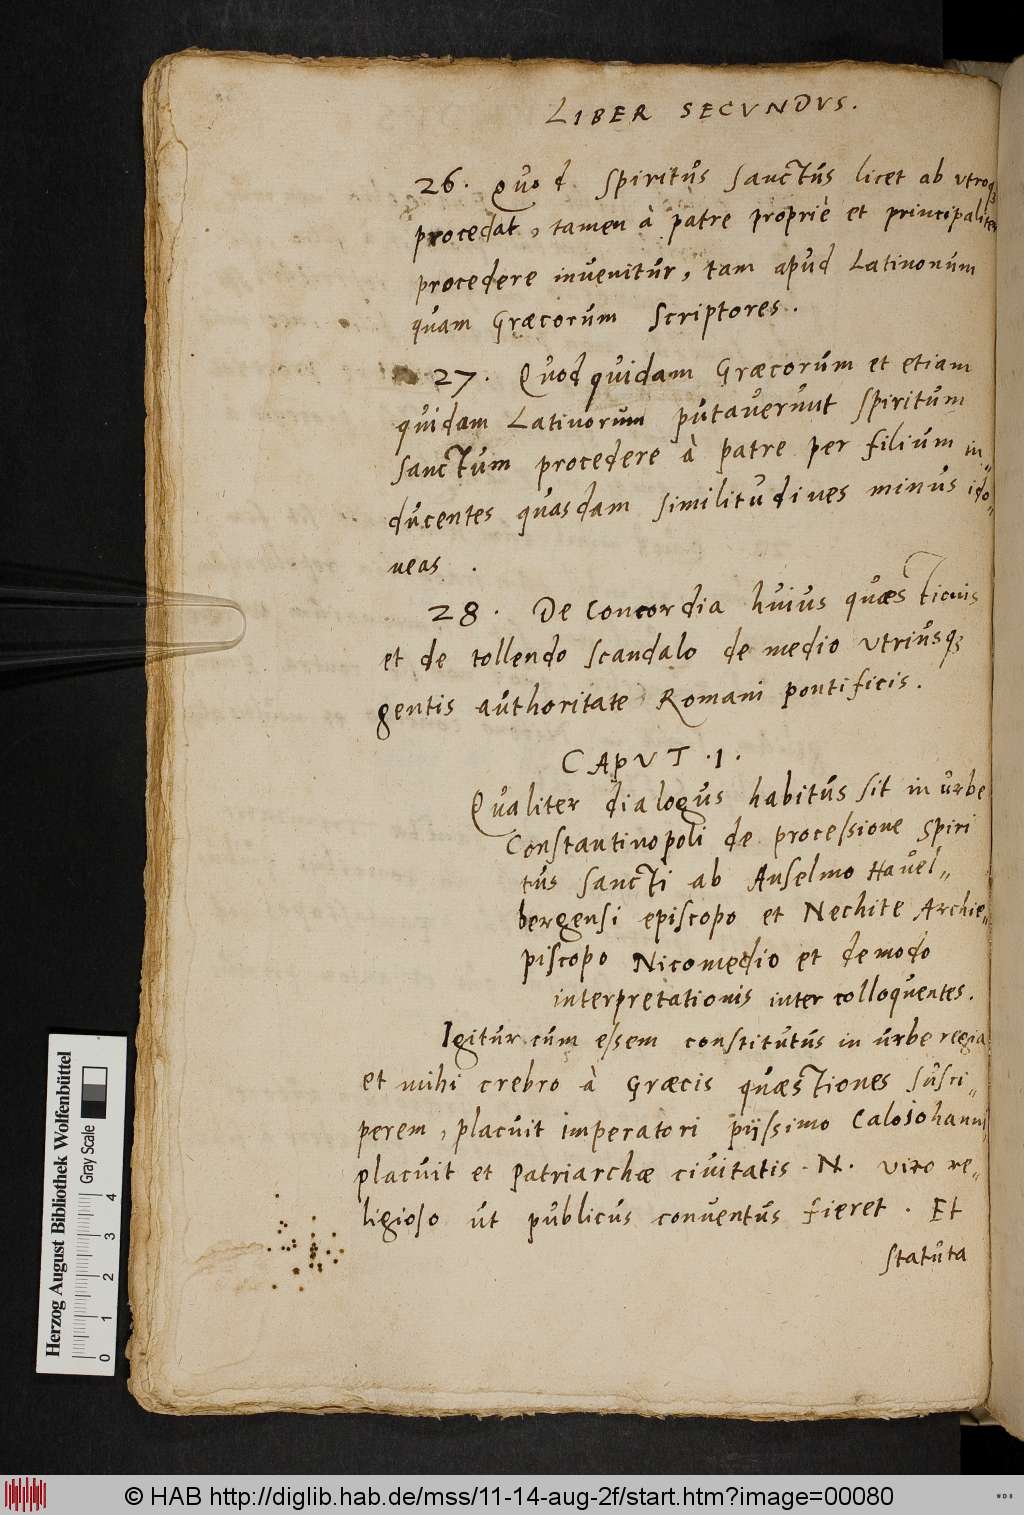 LIBER SECVNDVS.
26. Quod Spiritus Sanctus licet ab utroq3
procedat, tamen à patre propriè et principaliter
procedere invenitur, tam apud Latinorum
quam Græcorum Scriptores.
27. Quod quidam Græcorum et etiam
quidam Latinorum putaverunt Spiritum
Sanctum procedere à patre per filium in„
ducentes quasdam similitudines minus ido„
neas.
28. De Concordia huius quæstionis
et de tollendo scandalo de medio utriusq3
gentis authoritate Romani pontificis.
CAPVT .1.
Qualiter dialogus habitus sit in urbe
Constantinopoli de processione Spiri
tus Sancti ab Anselmo Havel„
bergensi episcopo et Nechite Archie„
piscopo Nicomedio et de modo
interpretationis inter colloquentes.
Igitur cum essem constitutus in urbe regia
et mihi crebro à Græcis quæstiones susci„
perem, placuit imperatori pijssimo Calojohanni
placuit et Patriarchæ civitatis .N. viro re„
ligioso ut publicus conventus fieret. Et
statuta
Herzog August Bibliothek Wolfenbüttel
Gray Scale
0 1 2 3 4
© HAB http://diglib.hab.de/mss/11-14-aug-2f/start.htm?image=00080